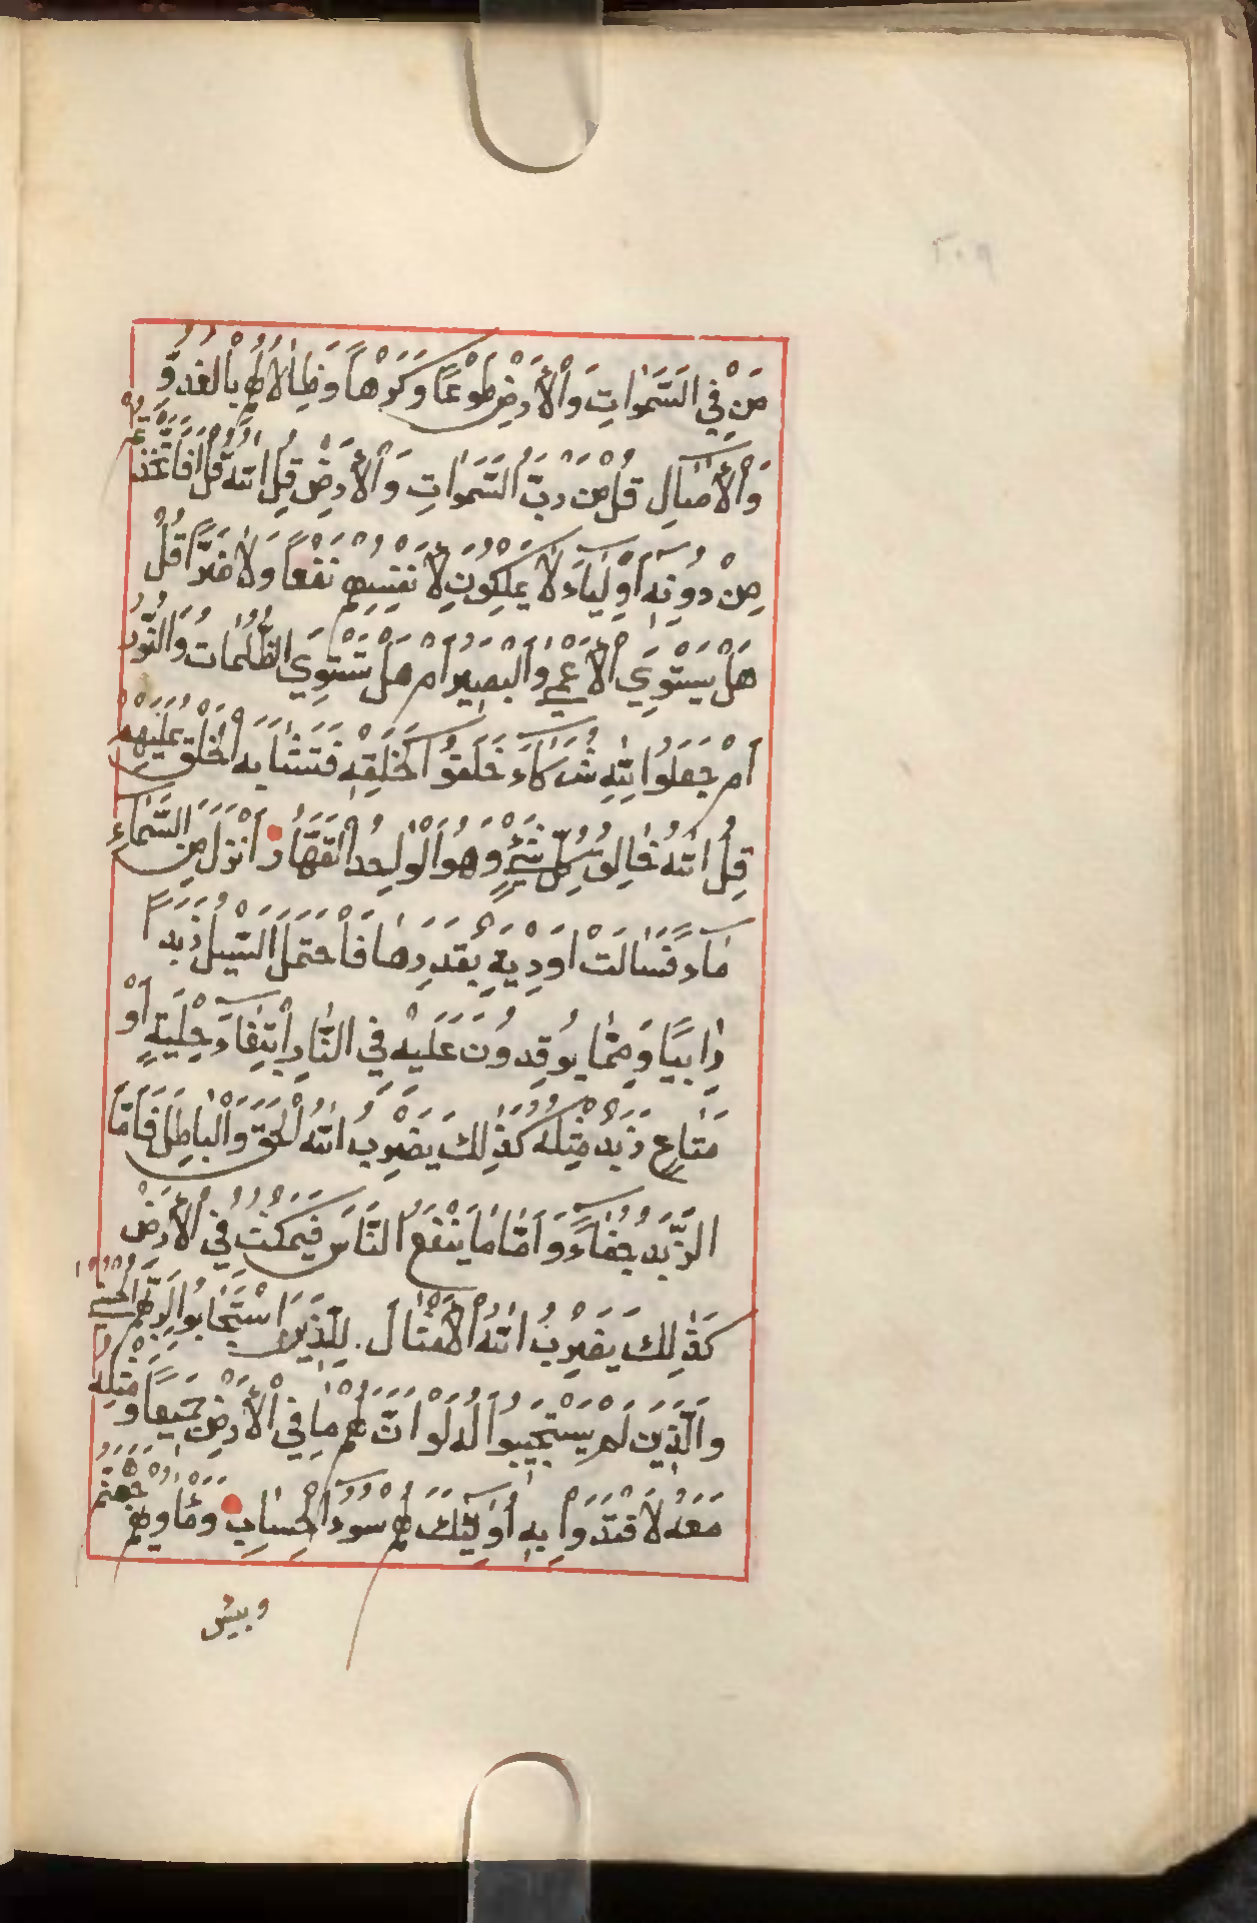 ٢٠٩
مَنْ فِي السَّمٰوَاتِ وَالْأَرْضِ طَوْعًا وَكَرْهًا وَظِلَالُهُمْ بِالْغُدُوِّ
وَالْأَصَالِ قُلْ مَنْ رَبُّ السَّمَوَاتِ وَالْأَرْضِ قُلِ اللّٰهُ قُلْ أَفَاتَّخَذْتُمْ
مِنْ دُونِهِ أَوْلِيَآءَ لَا يَمْلِكُونَ لِأَنْفُسِهِمْ نَفْعًا وَلَا ضَرًّا قُلْ
هَلْ يَسْتَوِي الْأَعْمٰى وَالْبَصِيرُ أَمْ هَلْ تَسْتَوِي الظُّلُمَاتُ وَالنُّورُ
أَمْ جَعَلُوا لِلّٰهِ شُرَكَآءَ خَلَقُوا كَخَلْقِهِ فَتَشَابَهَ الْخَلْقُ عَلَيْهِمْ
قُلِ اللّٰهُ خَالِقُ كُلِّ شَيْءٍ وَهُوَ الْوَاحِدُ الْقَهَّارُ أَنْزَلَ مِنَ السَّمَآءِ
مَآءً فَسَالَتْ أَوْدِيَةٌ بِقَدَرِهَا فَاحْتَمَلَ السَّيْلُ زَبَدًا
رَابِيًا وَمِمَّا يُوقِدُونَ عَلَيْهِ فِي النَّارِ ابْتِغَآءَ حِلْيَةٍ أَوْ
مَتَاعٍ زَبَدٌ مِثْلُهُ كَذٰلِكَ يَضْرِبُ اللّٰهُ الْحَقَّ وَالْبَاطِلَ فَأَمَّا
الزَّبَدُ جُفَآءً وَأَمَّا مَا يَنْفَعُ النَّاسَ فَيَمْكُثُ فِي الْأَرْضِ
كَذٰلِكَ يَضْرِبُ اللّٰهُ الْأَمْثَالَ لِلَّذِينَ اسْتَجَابُوا لِرَبِّهِمُ الْحُسْنٰى
وَالَّذِينَ لَمْ يَسْتَجِيبُوا لَهُ لَوْ أَنَّ لَهُمْ مَا فِي الْأَرْضِ جَمِيعًا وَمِثْلَهُ
مَعَهُ لَافْتَدَوْا بِهِ أُولٰئِكَ لَهُمْ سُوءُ الْحِسَابِ وَمَأْوٰيهُمْ جَهَنَّمُ
وبئس